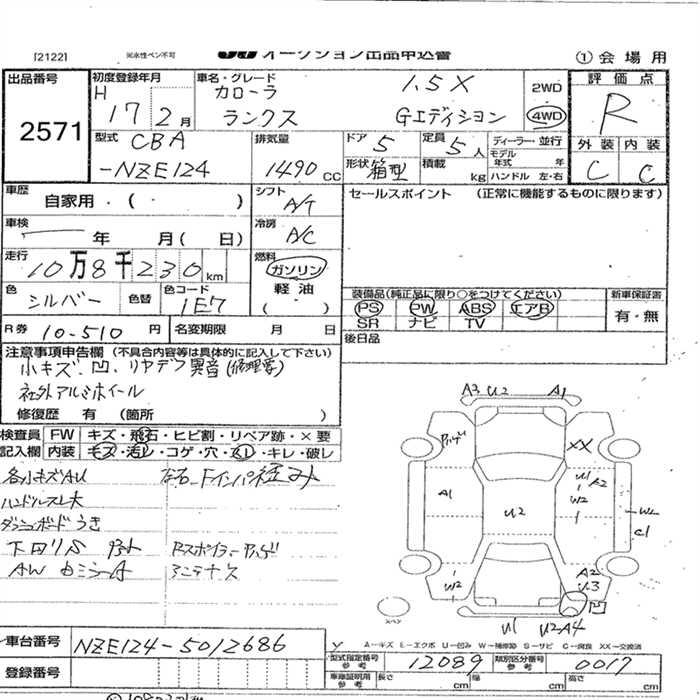 [2122] ※水性ペン不可 オークション出品申込書 ①会場用
出品番号 2571
初度登録年月 H 17年 2月
車名・グレード カローラ 1.5X
ランクス Gエディション
2WD
4WD
評価点 R
外装 内装
C C
型式 CBA
-NZE124
排気量 1490 CC
ドア 5 定員 5人
形状 箱型 積載 kg
ディーラー・並行
モデル年式 年
ハンドル 左・右
車歴 自家用・( )
シフト A/T
セールスポイント (正常に機能するものに限ります)
車検 年 月( 日)
冷房 A/C
走行 10万8千230km
燃料 ガソリン
軽油
( )
色 シルバー 色替 色コード 1E7
装備品(純正品に限り○をつけてください) 新車保証書
PS PW ABS エアB 有・無
SR ナビ TV
R券 10-510円 名変期限 月 日
後日品
注意事項申告欄 (不具合内容等は具体的に記入して下さい)
小キズ、凹、リヤデフ異音(修理要)
社外アルミホイール
修復歴 有 (箇所 )
検査員 FW キズ・飛石・ヒビ割・リペア跡・×要
記入欄 内装 キズ・汚レ・コゲ・穴・スレ・キレ・破レ
各小キズAU
ハンドルスレ大
ダッシュボードうき
下回リS
AW カミラーA
Rスポイラー
アンテナ
A3 U2 A1
XX
A1
U1 A2
W2
U2
W2
C1
W2
A2
U3
凹
スペア
U1 U2A4
A-キズ E-エクボ U-凹み W-補修跡 S-サビ C-腐食 XX-交換済
車台番号 NZE124-5012686
型式指定番号 参考 12089 類別区分番号 参考 0017
登録番号
車庫証明用 参考 長さ cm 幅 cm 高さ cm